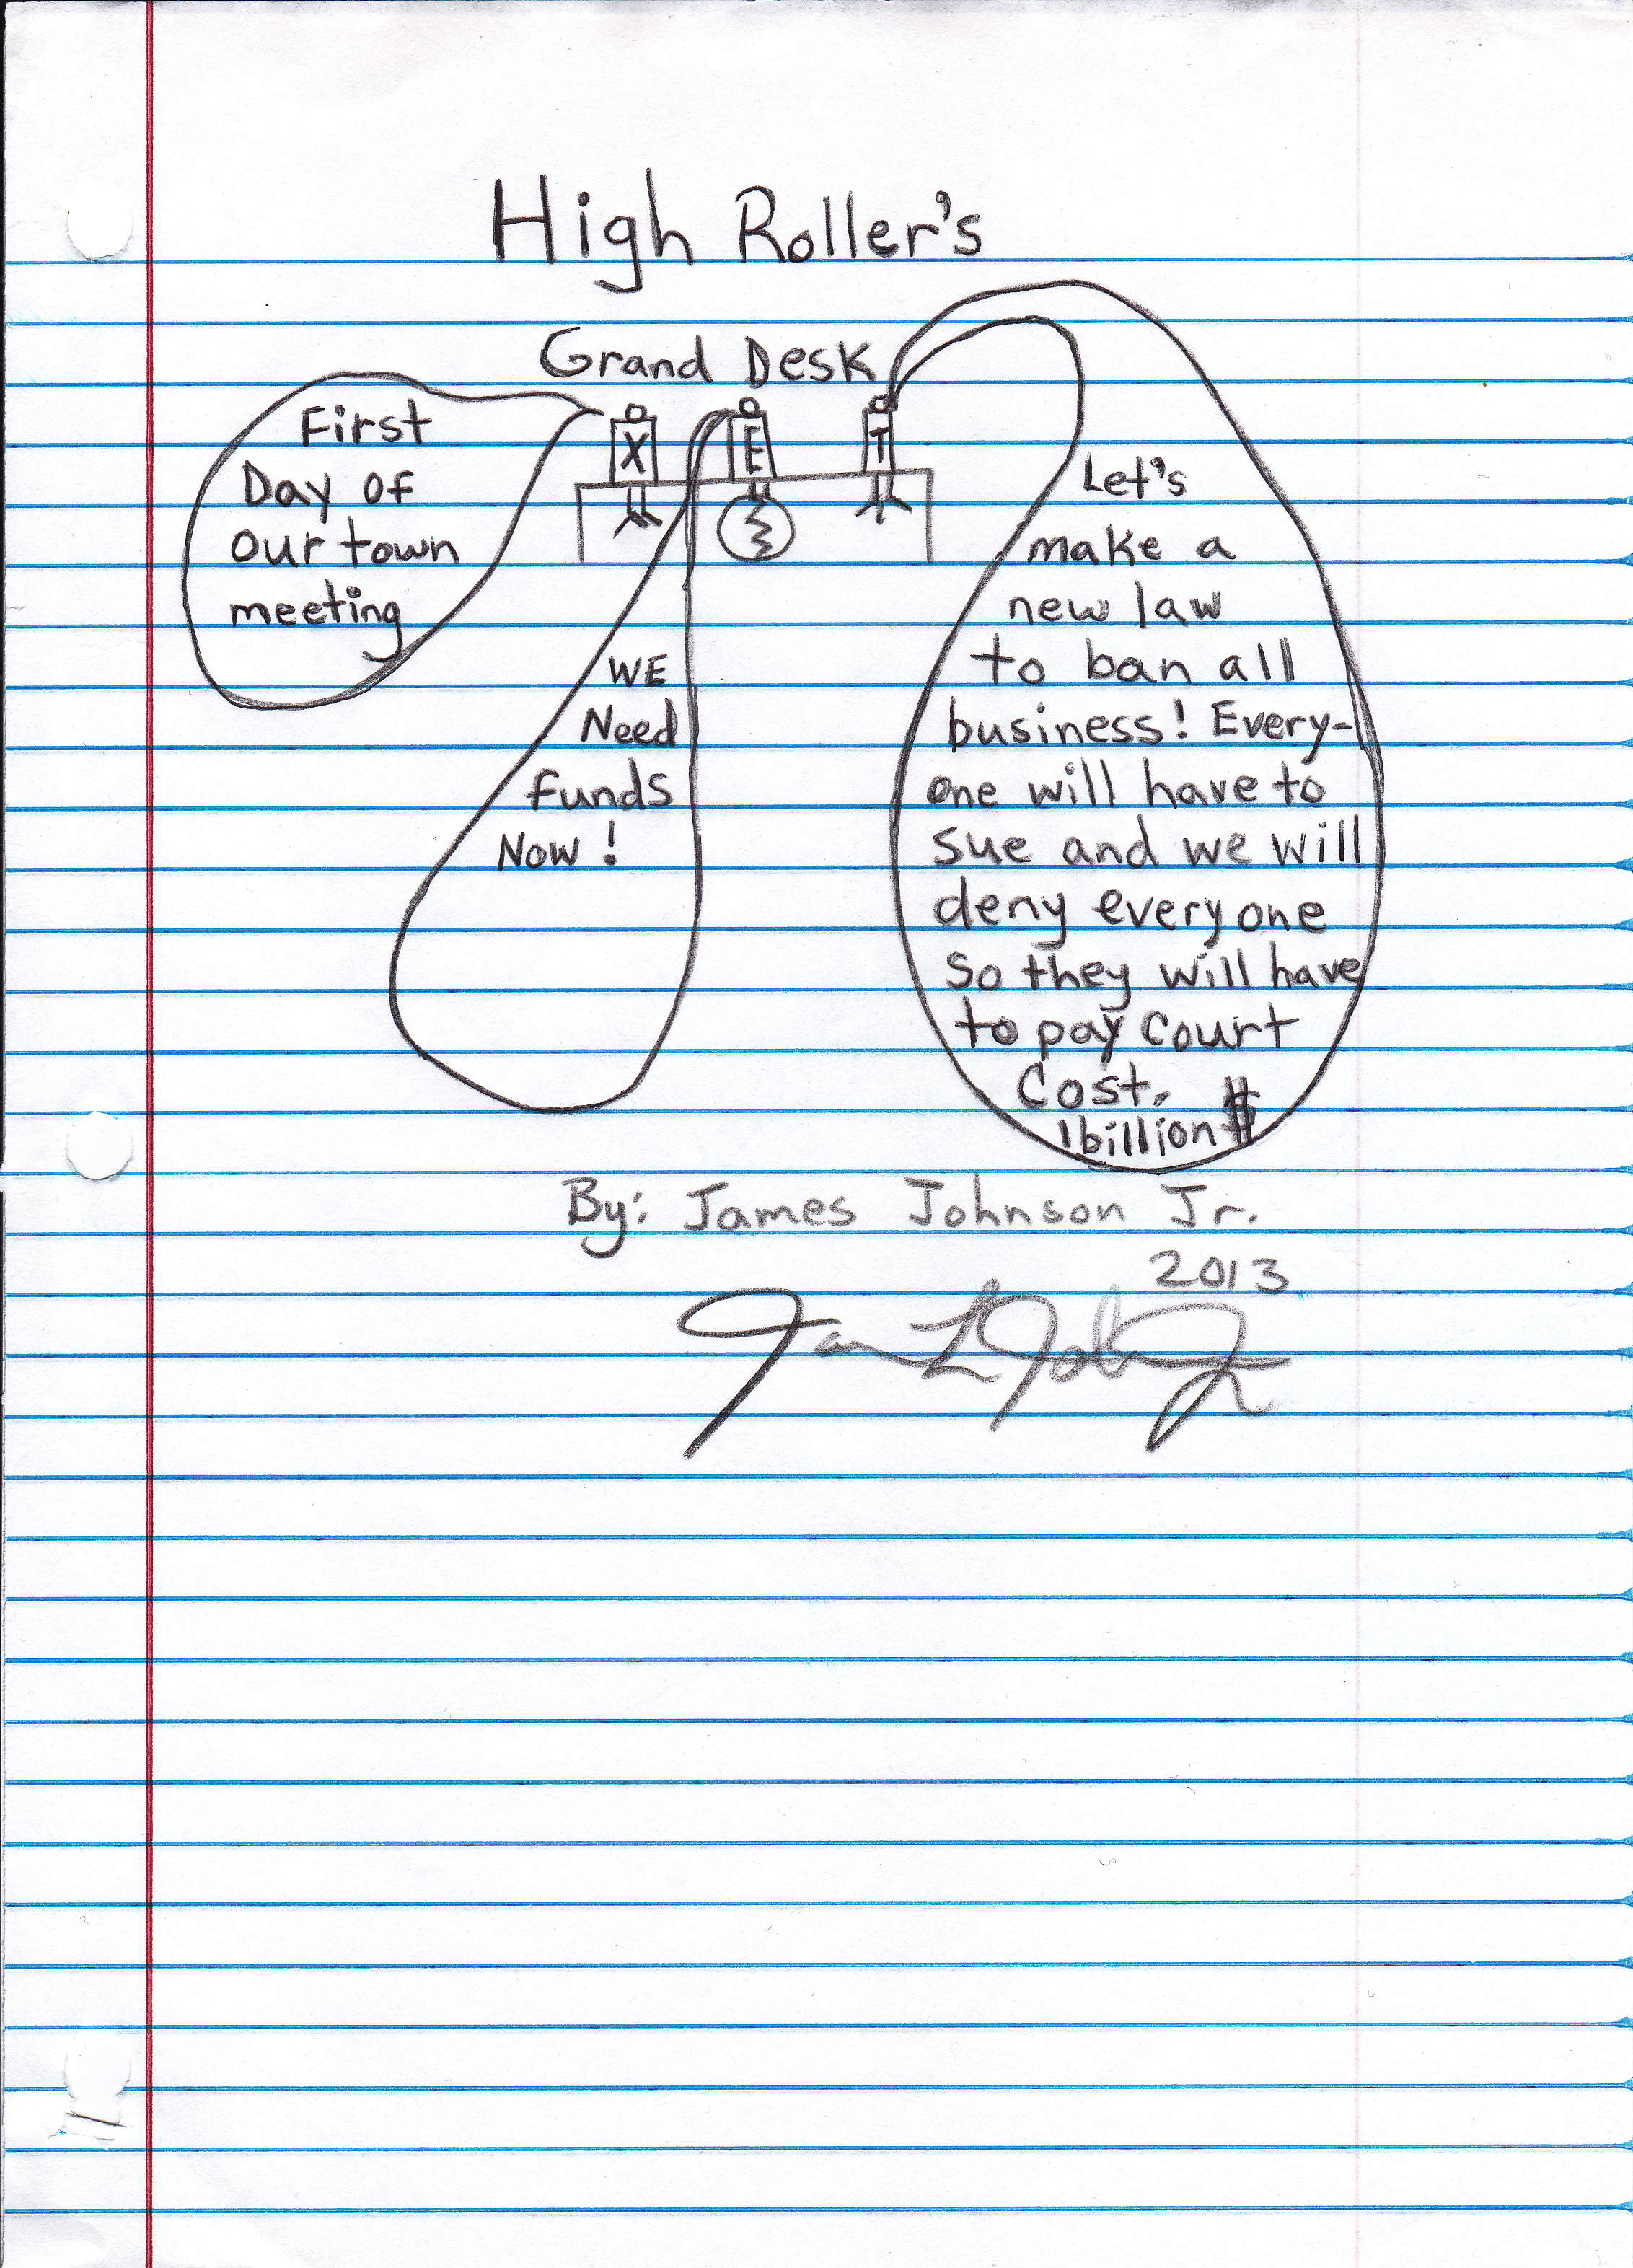 High Roller's
Grand Desk
X E T
First
Day of
our town
meeting
WE
Need
funds
Now!
Let's
make a
new law
to ban all
business! Every-
one will have to
sue and we will
deny everyone
so they will have
to pay court
cost.
1billion$
By: James Johnson Jr.
2013